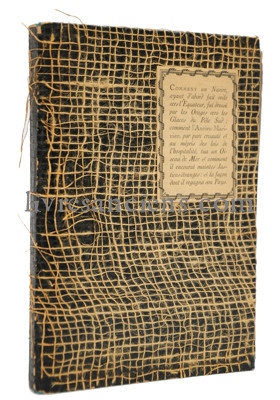 COMMENT un NAVIRE,
ayant d'abord fait voile
vers l'Equateur, fut
par les Orages vers les
Glaces du Pôle Sud ;
comment l'Ancien Mari-
nier, par pure cruauté et
au mépris des lois de
l'Hospitalité, tua un Oi-
seau de Mer et comment
il encourut maintes Jus-
tices étranges : et la façon
dont il regagna son Pays.